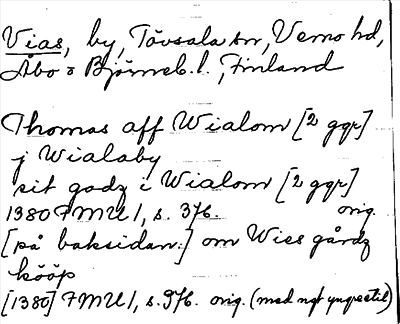 Vias, by, Tövsala sn, Vemo hd,
Åbo o Björneb. l., Finland
Thomas aff Wialom [2 ggr]
j Wialaby
sit godz i Wialom [2 ggr]
1380 FMU 1, s. 376. orig.
[på baksidan:] om Wies gårdz
kööp
[1380] FMU 1, s. 376. orig. (med ngt yngre stil)